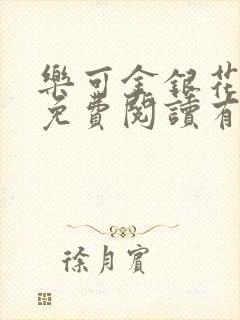 樂可金銀花
免費閱讀有
徐月賓